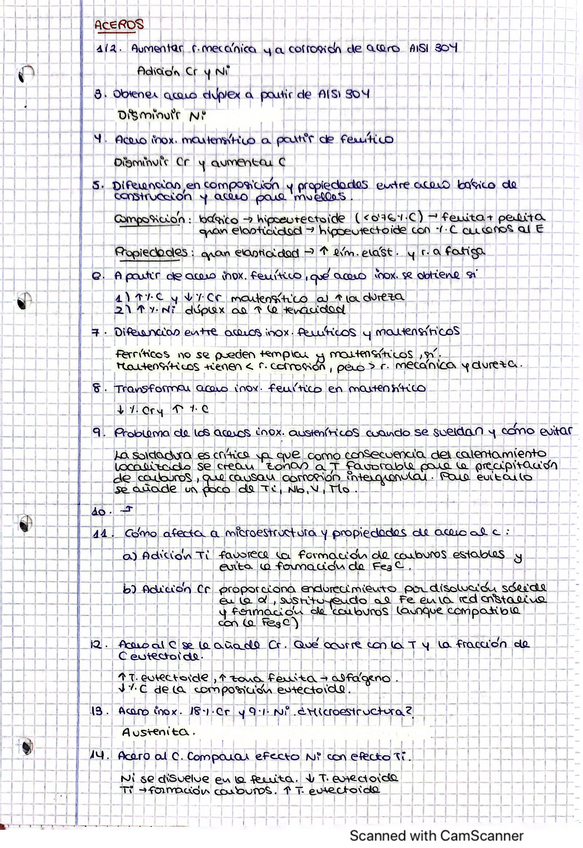 ACEROS
1/2. Aumentar r. mecánica y a corrosión de acero AISI 304
Adición Cr y Ni
3. Obtener acero dúplex a partir de AISI 304
Disminuir Ni
4. Acero inox. martensítico a partir de ferrítico
Disminuir Cr y aumentar C
5. Diferencias en composición y propiedades entre acero básico de
construcción y acero para muelles.
Composición: básico → hipoeutectoide (<0'76%C) → ferrita + perlita
gran elasticidad → hipoeutectoide con %C cercanos al E
Propiedades: gran elasticidad → ↑ lím. elást. y r. a fatiga
6. A partir de acero inox. ferrítico, qué acero inox. se obtiene si
1) ↑%C y ↓%Cr martensítico al ↑ la dureza
2) ↑%Ni dúplex al ↑ la tenacidad
7. Diferencias entre aceros inox. ferríticos y martensíticos
Ferríticos no se pueden templar y martensíticos, sí.
Martensíticos tienen < r. corrosión, pero > r. mecánica y dureza.
8. Transformar acero inox. ferrítico en martensítico
↓%Cr y ↑%C
9. Problema de los aceros inox. austeníticos cuando se sueldan y cómo evitar
La soldadura es crítica ya que como consecuencia del calentamiento
localizado se crean zonas a T favorable para la precipitación
de carburos, que causan corrosión intergranular. Para evitarlo
se añade un poco de Ti, Nb, V, Mo.
10. 5
11. Cómo afecta a microestructura y propiedades de acero al C:
a) Adición Ti favorece la formación de carburos estables y
evita la formación de Fe3C.
b) Adición Cr proporciona endurecimiento por disolución sólida
en la α, sustituyendo al Fe en la red cristalina
y formación de carburos (aunque compatible
con la Fe3C)
12. Acero al C se le añade Cr. Qué ocurre con la T y la fracción de
C eutectoide.
↑T. eutectoide, ↑ zona ferrita → alfágeno.
↓%C de la composición eutectoide.
13. Acero inox. 18%Cr y 9%Ni. ¿Microestructura?
Austenita.
14. Acero al C. Comparar efecto Ni con efecto Ti.
Ni se disuelve en la ferrita. ↓ T. eutectoide
Ti → formación carburos. ↑ T. eutectoide
Scanned with CamScanner